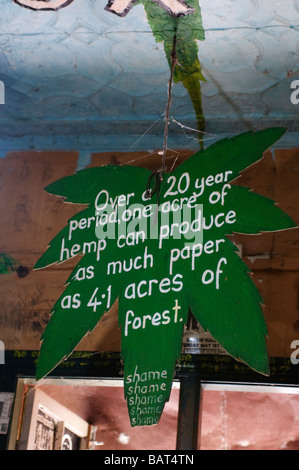 Over a 20 year
period.one acre of
hemp can produce
as much paper
as 4·1 acres of
forest.
shame
shame
shame
shame
shame
alamy
Image ID: BAT4TN
www.alamy.com